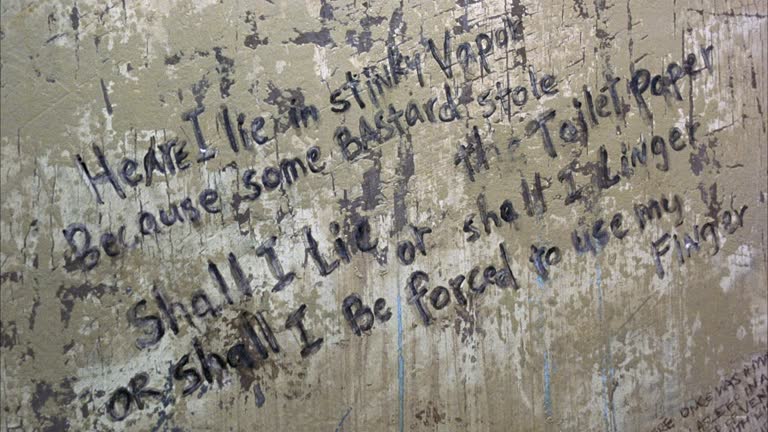 Heare I lie in stinky Vapor
Because some BAstard stole
the Toilet Paper
Shall I Lie or shall I Linger
OR shall I Be forced to use my
Finger
ONCE WAS A MAN